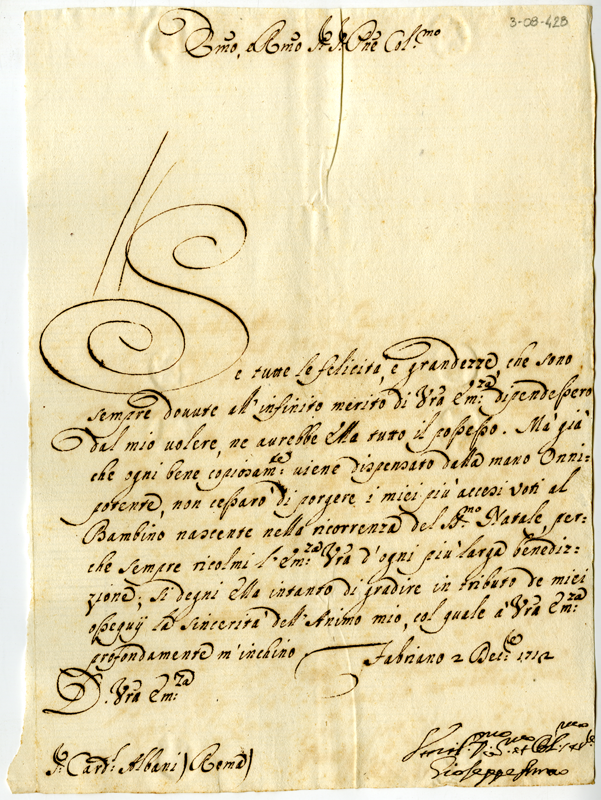 3-08-423
Em̃o, e Rm̃o Sig.r Sig.r Pñe Col.mo
Se tutte le felicità, e grandezze, che sono
sempre douute all'infinito merito di Vr̃a Em.za dipendessero
dal mio uolere, ne aurebbe ella tutto il possesso. Mà già
che ogni bene copiosam.te uiene dispensato dalla mano Onni-
potente, non cessarò di porgere i miei più accesi voti al
Bambino nascente nella ricorrenza del S.mo Natale, per-
che sempre ricolmi l'Em.za Vr̃a d'ogni più larga benediz-
zione; Si degni ella intanto di gradire in tributo de miei
ossequij la sincerità dell'Animo mio, col quale à Vr̃a Em.za
profondamente m'inchino Fabriano 2 Dec.e 1712
D. Vr̃a Em.za
S.r Card.l Albani) Roma)
Gioseppe